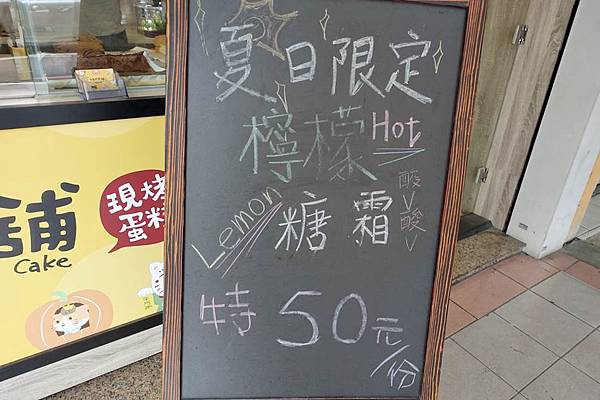 夏日限定
檸檬 Hot
Lemon 糖霜
酸V酸V
特50元/份
舖
Cake
現烤
蛋糕